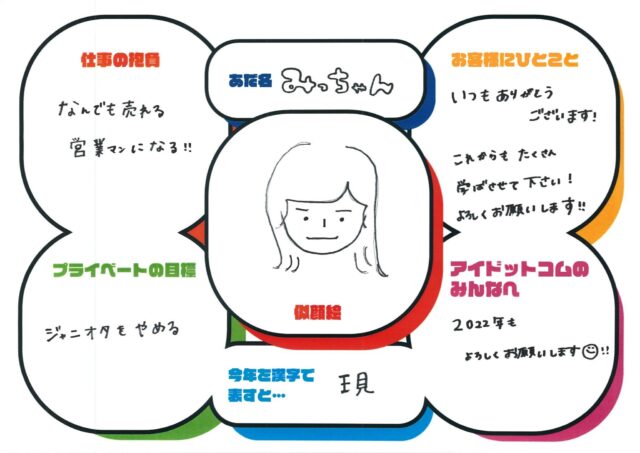 仕事の抱負
なんでも売れる
営業マンになる!!
あだ名 みっちゃん
お客様にひとこと
いつもありがとう
ございます!
これからもたくさん
学ばさせて下さい!
よろしくお願いします!!
似顔絵
プライベートの目標
ジャニオタをやめる
今年を漢字で
表すと… 現
アイドットコムの
みんなへ
2022年も
よろしくお願いします☺!!